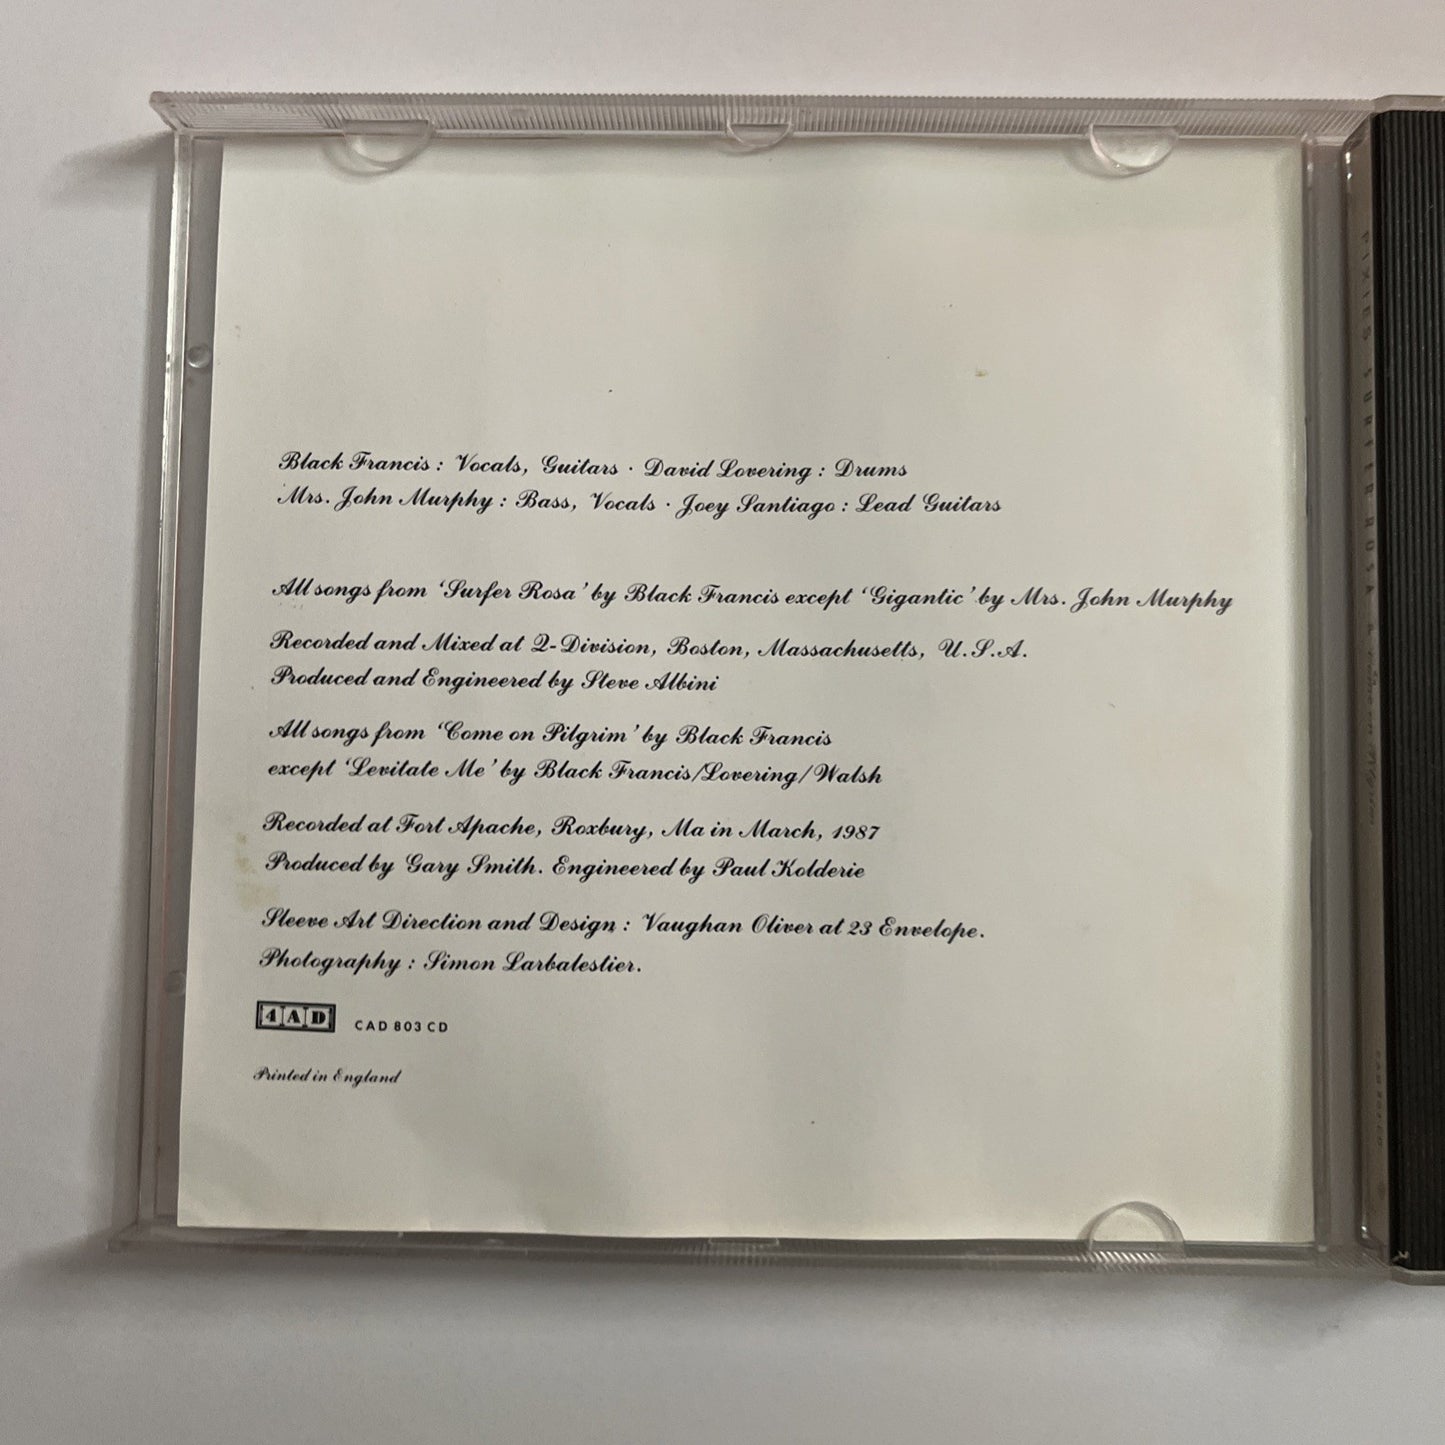 Black Francis : Vocals, Guitars · David Lovering : Drums
Mrs. John Murphy : Bass, Vocals · Joey Santiago : Lead Guitars
All songs from ‘Surfer Rosa’ by Black Francis except ‘Gigantic’ by Mrs. John Murphy
Recorded and Mixed at Q-Division, Boston, Massachusetts, U.S.A.
Produced and Engineered by Steve Albini
All songs from ‘Come on Pilgrim’ by Black Francis
except ‘Levitate Me’ by Black Francis/Lovering/Walsh
Recorded at Fort Apache, Roxbury, Ma in March, 1987
Produced by Gary Smith. Engineered by Paul Kolderie
Sleeve Art Direction and Design : Vaughan Oliver at 23 Envelope.
Photography : Simon Larbalestier.
4AD CAD 803 CD
Printed in England
PIXIES SURFER ROSA & Come on Pilgrim
CAD 803 CD